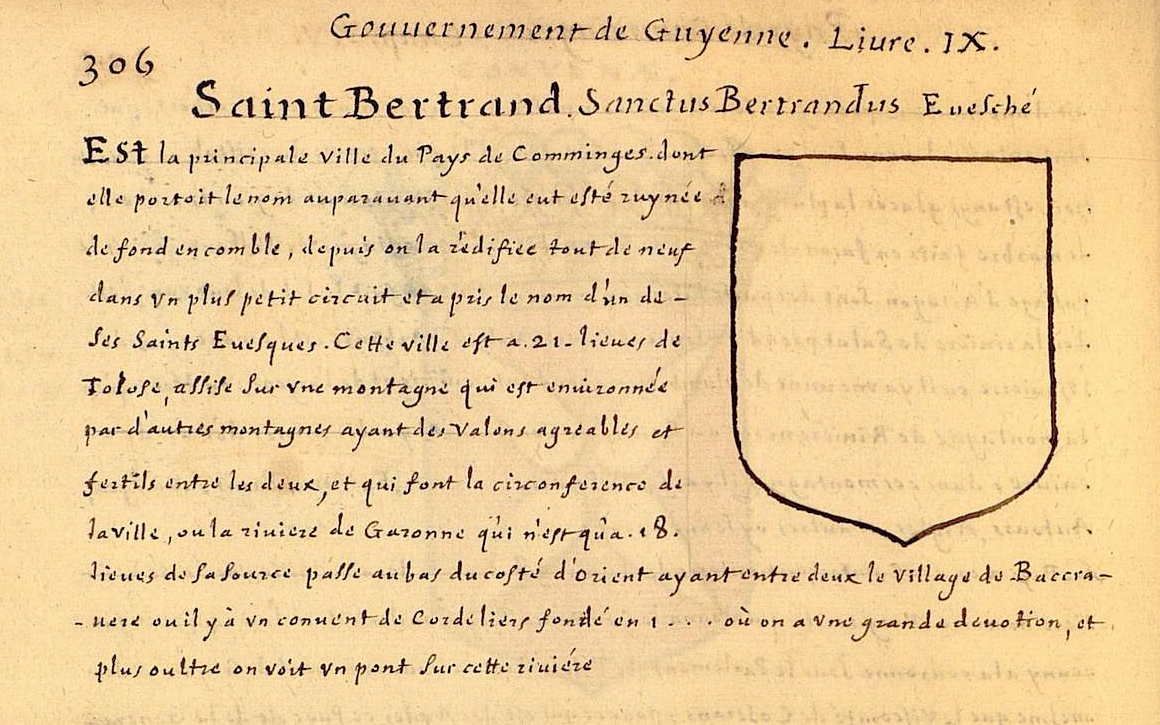 Gouuernement de Guyenne. Liure. IX.
306
Saint Bertrand. Sanctus Bertrandus Euesché
Est la principale ville du Pays de Comminges. dont
elle portoit le nom auparauant qu'elle eut esté ruynée
de fond en comble, depuis on la rédifiee tout de neuf
dans vn plus petit circuit et a pris le nom d'un de -
ses Saints Euesques. Cette ville est a. 21. lieues de
Tolose, assise sur vne montagne qui est enuironnée
par d'autres montagnes ayant des Valons agreables et
fertils entre les deux, et qui font la circonference de
la ville, ou la riviere de Garonne qui n'est qu'a. 18.
lieues de sa source passe au bas du costé d'Orient ayant entre deux le Village de Baccra-
- uere ou il y à vn conuent de Cordeliers fondé en 1 . . . où on a vne grande deuotion, et
plus oultre on voit vn pont sur cette riviére